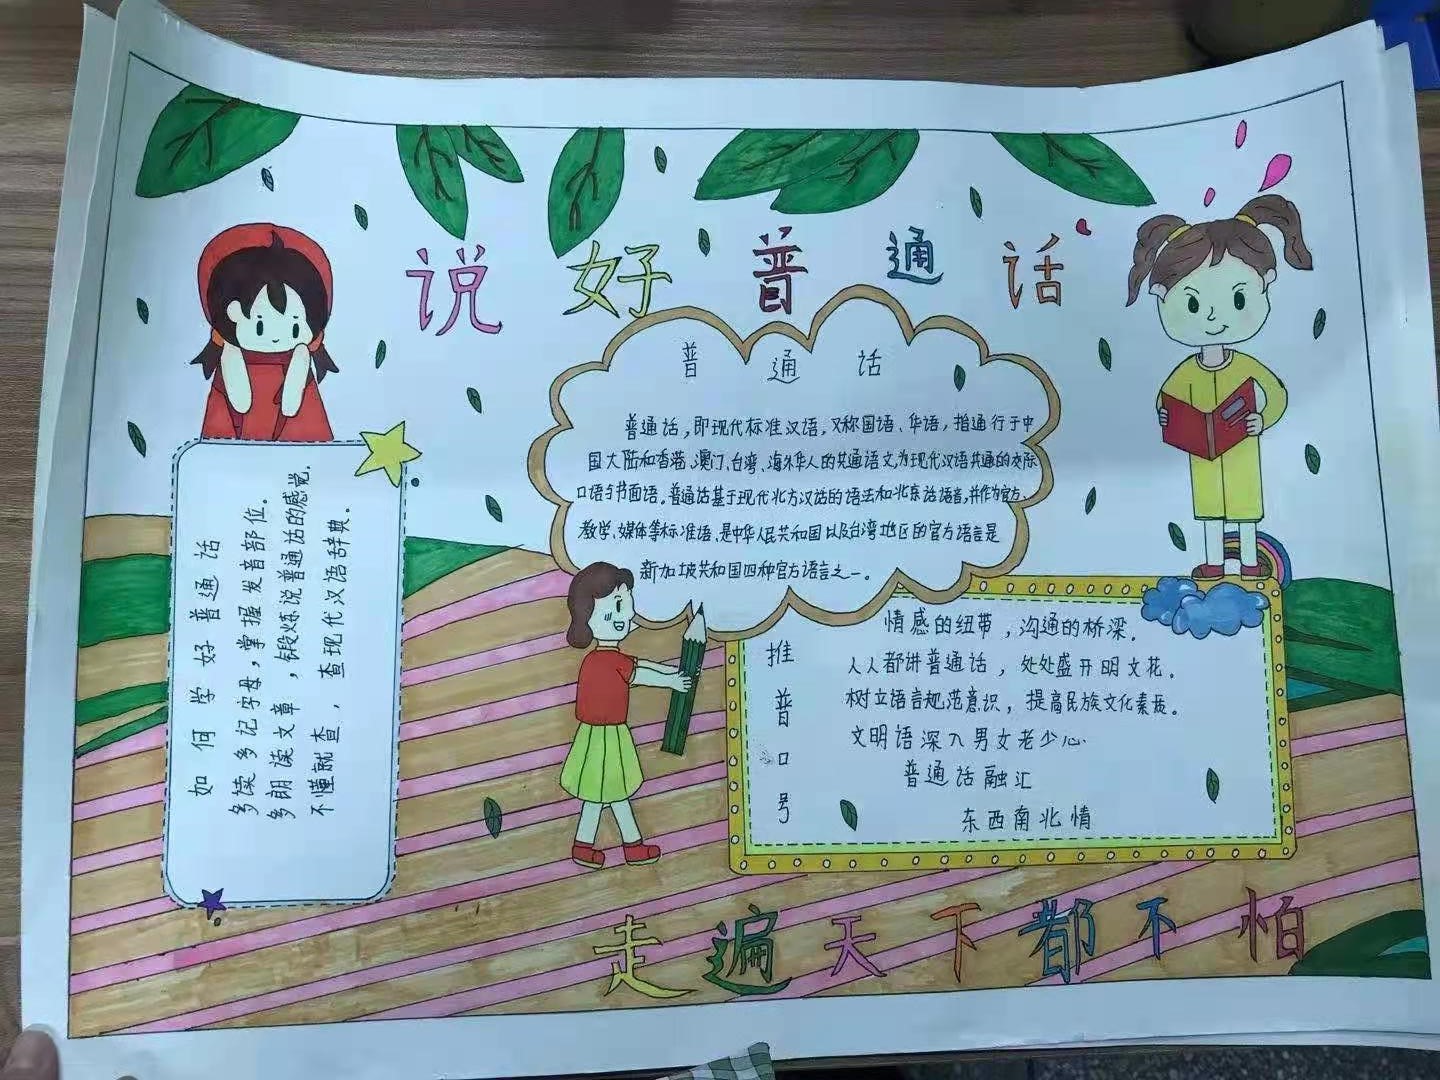 说好普通话
普通话
普通话，即现代标准汉语，又称国语、华语，指通行于中
国大陆和香港、澳门、台湾、海外华人的共通语文，为现代汉语共通的交际
口语与书面语。普通话基于现代北方汉话的语法和北京话语音，并作为官方、
教学、媒体等标准语，是中华人民共和国以及台湾地区的官方语言是
新加坡共和国四种官方语言之一。
如何学好普通话
多读多记字母，掌握发音部位。
多朗读文章，锻炼说普通话的感觉.
不懂就查，查现代汉语辞典。
推普口号
情感的纽带，沟通的桥梁.
人人都讲普通话，处处盛开明文花。
树立语言规范意识，提高民族文化素质。
文明语深入男女老少心.
普通话融汇
东西南北情
走遍天下都不怕